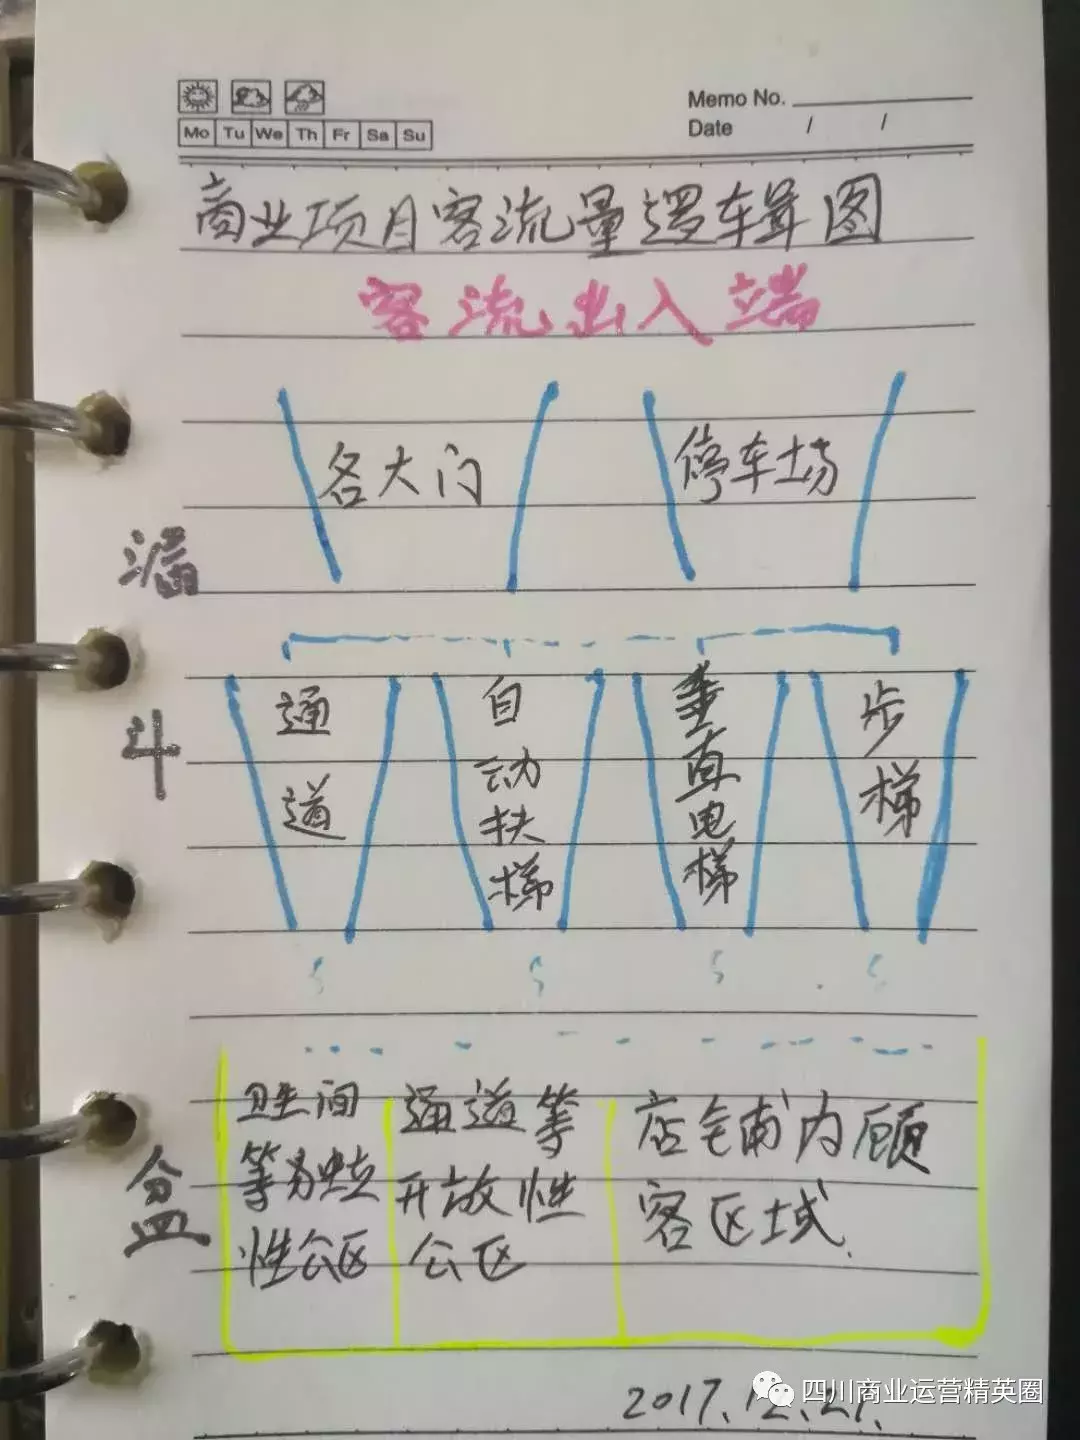 Memo No.
Mo Tu We Th Fr Sa Su
Date / /
商业项目客流量逻辑图
客流出入端
各大门
停车场
漏斗
通道
自动扶梯
垂直电梯
步梯
盆
卫生间
等独立
性公区
通道等
开放性
公区
店铺内顾
客区域
2017.12.21.
四川商业运营精英圈